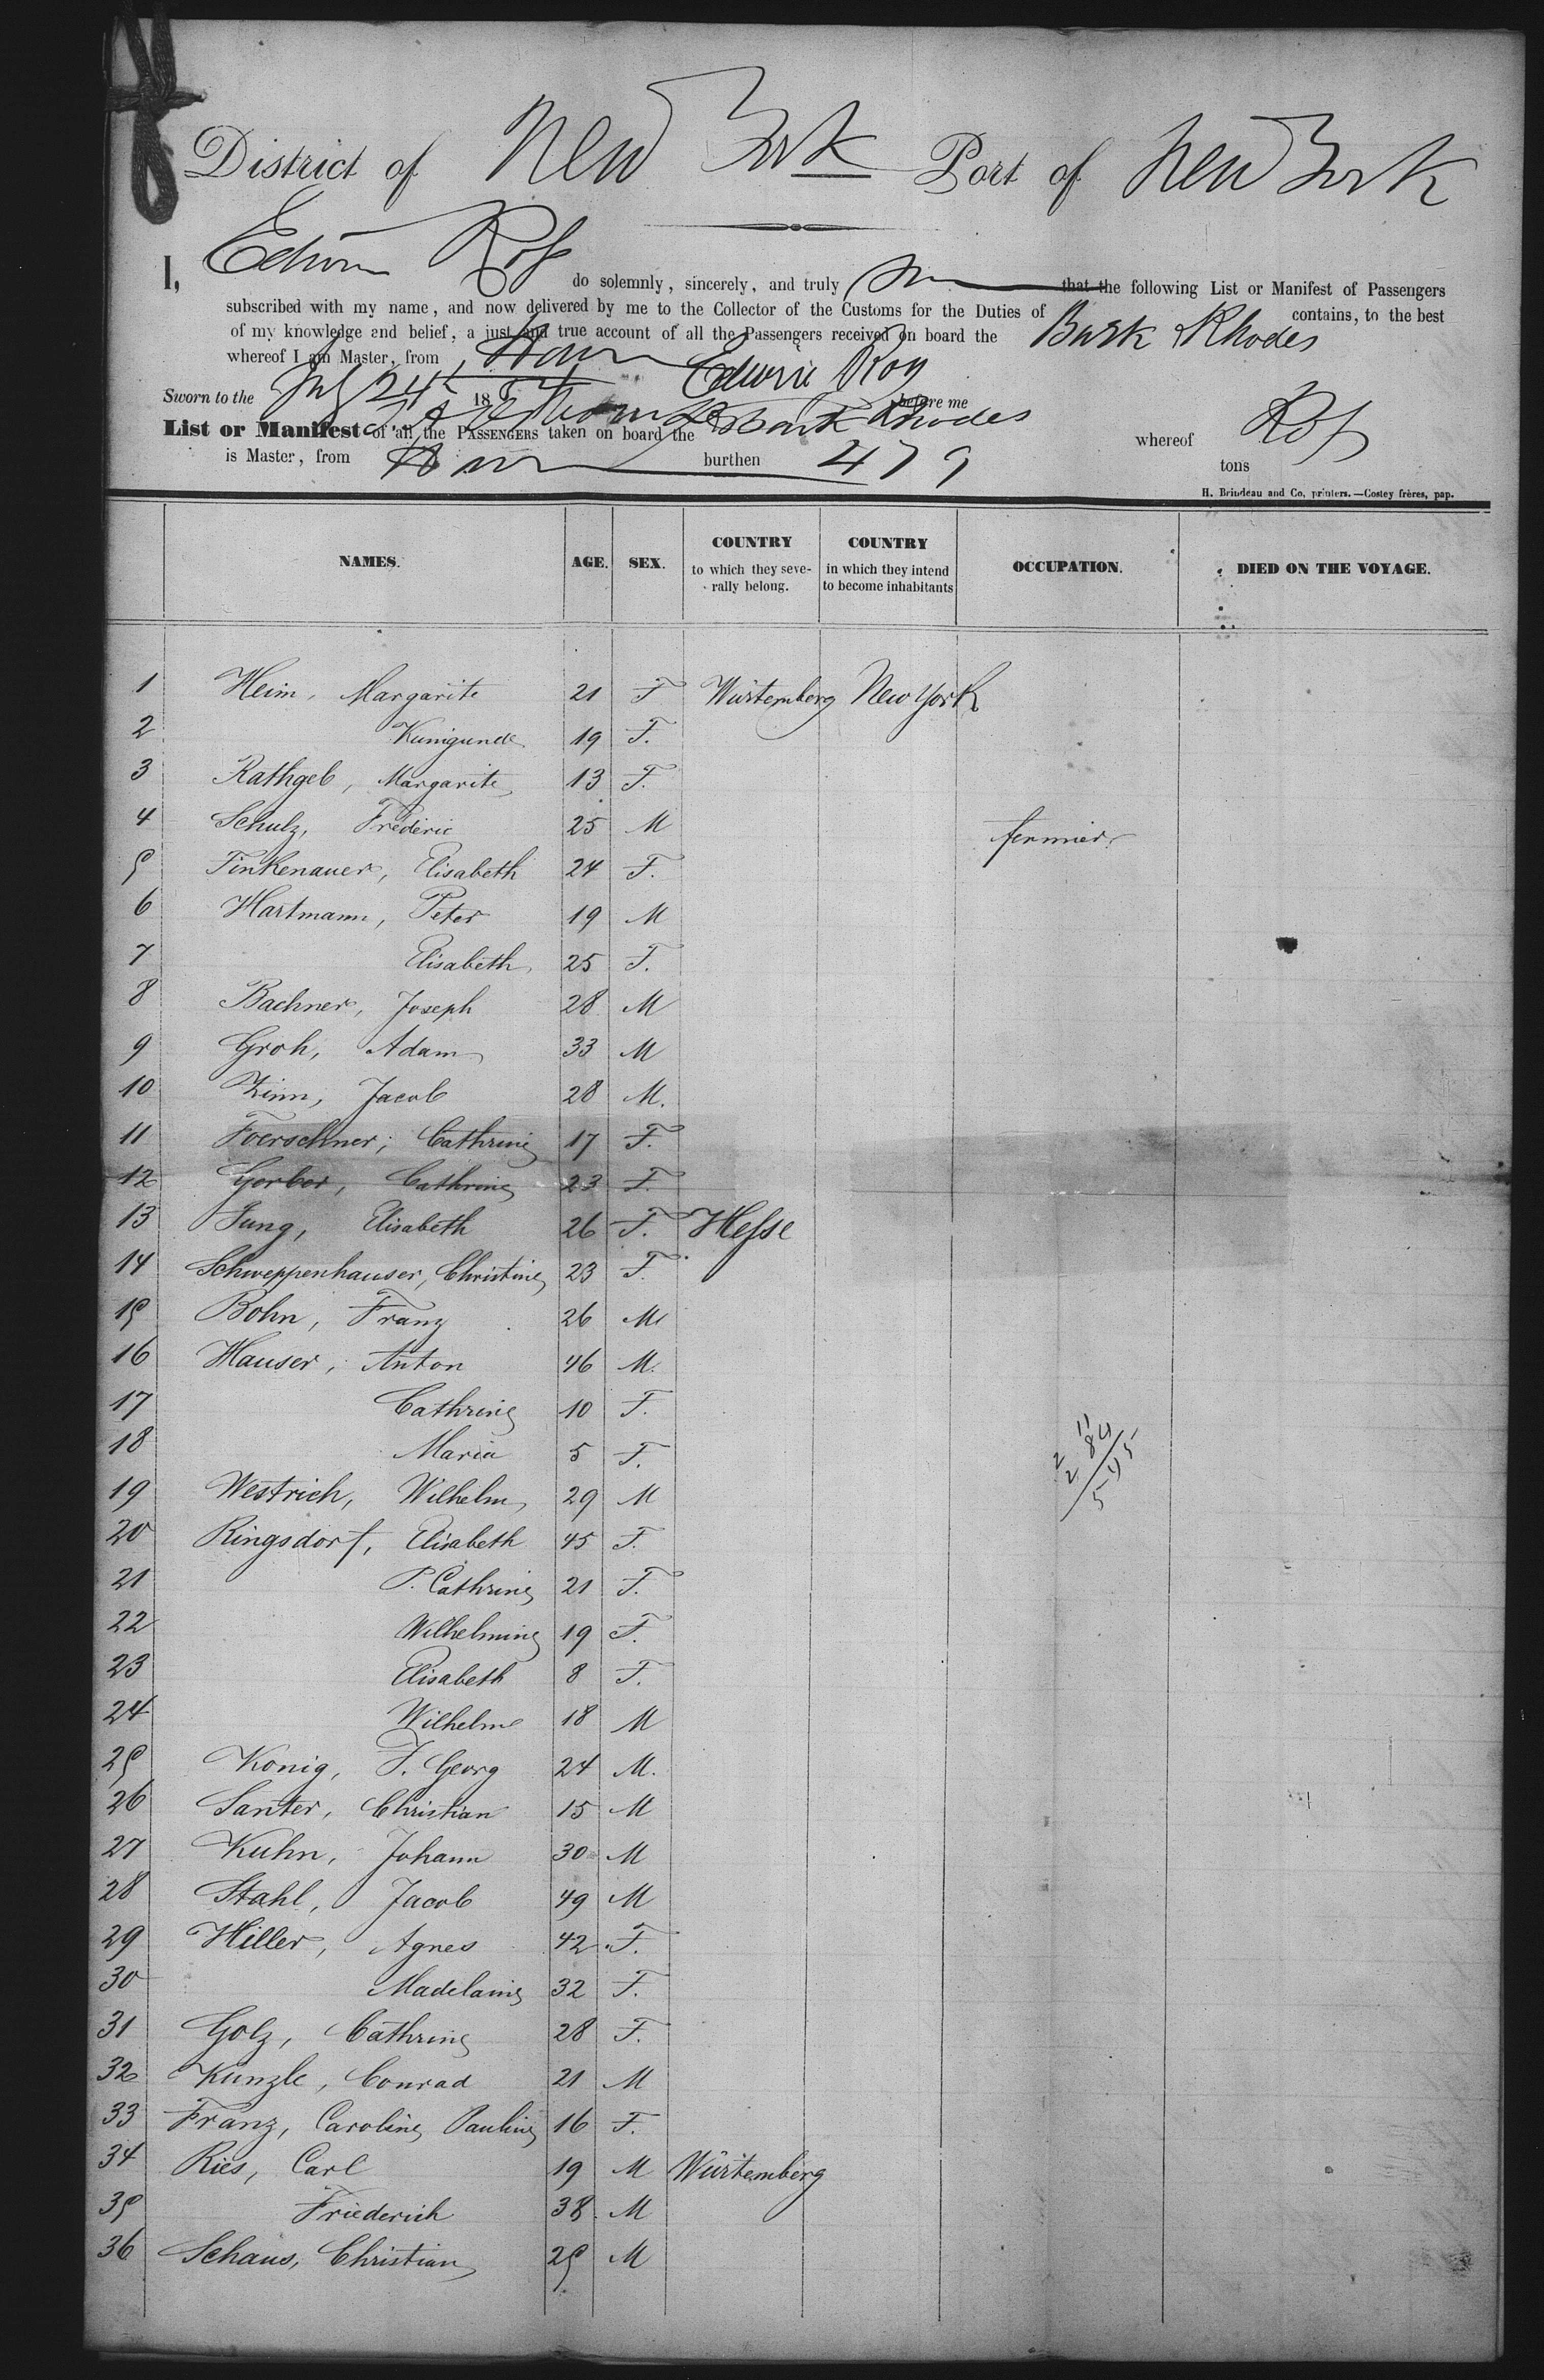 District of New York Port of New York
I, Edwin Ross do solemnly, sincerely, and truly that the following List or Manifest of Passengers
subscribed with my name, and now delivered by me to the Collector of the Customs for the Duties of contains, to the best
of my knowledge and belief, a just and true account of all the Passengers received on board the Bark Rhodes
whereof I am Master, from Havre Edwin Ross
Sworn to the July 24th 18 before me
List or Manifest of all the PASSENGERS taken on board the Bark Rhodes whereof Ross
is Master, from Havre burthen 479 tons
H. Brindeau and Co, printers.—Costey frères, pap.
NAMES. AGE. SEX. COUNTRY to which they severally belong. COUNTRY in which they intend to become inhabitants OCCUPATION. DIED ON THE VOYAGE.
1 Heim, Margarite 21 F Würtemberg New York
2 Kunigunde 19 F.
3 Rathgeb, Margarite 13 F.
4 Schulz, Frederic 25 M fermier
5 Finkenauer, Elisabeth 24 F.
6 Hartmann, Peter 19 M
7 Elisabeth 25 F.
8 Bachner, Joseph 28 M
9 Groh, Adam 33 M
10 Zinn, Jacob 28 M.
11 Foerschner, Cathrine 17 F.
12 Gerber, Cathrine 23 F.
13 Jung, Elisabeth 26 F. Hesse
14 Schweppenhauser, Christine 23 F.
15 Bohn, Franz 26 M
16 Hauser, Anton 46 M.
17 Cathrine 10 F.
18 Maria 5 F.
19 Westrich, Wilhelm 29 M
20 Ringsdorf, Elisabeth 45 F.
21 P. Cathrine 21 F.
22 Wilhelmine 19 F.
23 Elisabeth 8 F.
24 Wilhelm 18 M
25 Konig, F. Georg 24 M.
26 Santer, Christian 15 M
27 Kuhn, Johann 30 M
28 Stahl, Jacob 49 M
29 Hiller, Agnes 42 F.
30 Madelaine 32 F.
31 Golz, Cathrine 28 F.
32 Kunzle, Conrad 21 M
33 Franz, Caroline Pauline 16 F.
34 Ries, Carl 19 M Würtemberg
35 Friederich 38 M
36 Schaus, Christian 25 M